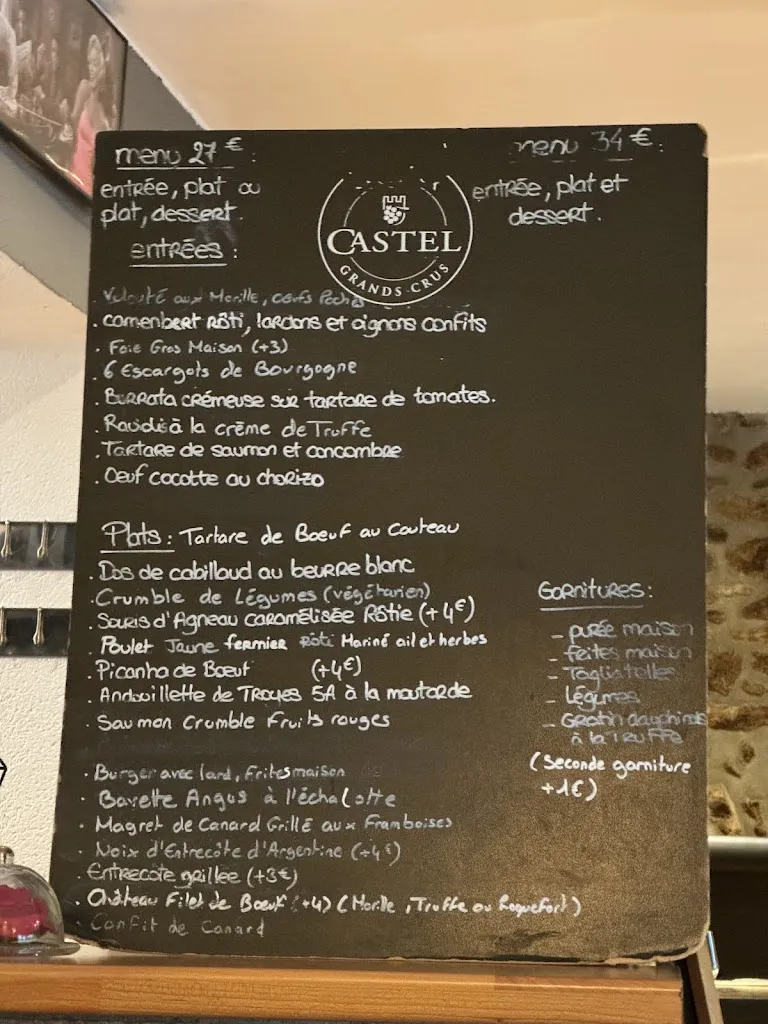 menu 27 € :
entrée, plat ou
plat, dessert.
menu 34 € :
entrée, plat et
dessert.
CASTEL
GRANDS CRUS
entrées :
. Velouté aux Morille, oeufs Pochés
. camenbert Rôti, lardons et oignons confits
. Foie Gros Maison (+3)
. 6 Escargots de Bourgogne
. Burrata crémeuse sur tartare de tomates.
. Raviolis à la crème de Truffe
. Tartare de saumon et concombre
. Oeuf cocotte au chorizo
Plats : Tartare de Boeuf au Couteau
. Dos de cabillaud au beurre blanc
. Crumble de Légumes (végétarien)
. Souris d'Agneau caramélisée Rôtie (+4€)
. Poulet Jaune fermier Rôti Mariné ail et herbes
. Picanha de Boeuf (+4€)
. Andouillette de Troyes 5A à la moutarde
. Saumon Crumble Fruits rouges
Garnitures :
- purée maison
- frites maison
- Tagliatelles
- légumes
- Gratin dauphinois
à la Truffe
(Seconde garniture
+1€)
. Burger avec lard, Frites maison
. Bavette Angus à l'échalotte
. Magret de Canard Grillé aux Framboises
. Noix d'Entrecôte d'Argentine (+4€)
. Entrecôte grillée (+3€)
. Château Filet de Boeuf (+4) (Morille, Truffe ou Roquefort)
. Confit de Canard